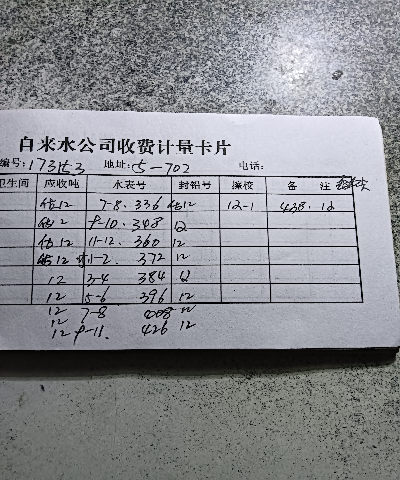 自来水公司收费计量卡片
编号: 173栋3 地址: 5-702 电话:
卫生间 应收吨 水表号 封铅号 撿校 备 注
估12 7-8. 336 估12 12-1 438. 12
估12 9-10. 348 12
估12 11-12. 360 12
估12 1-2. 372 12
12 3-4 384 12
12 5-6 396 12
12 7-8 408 12
12
12 9-11. 426 12